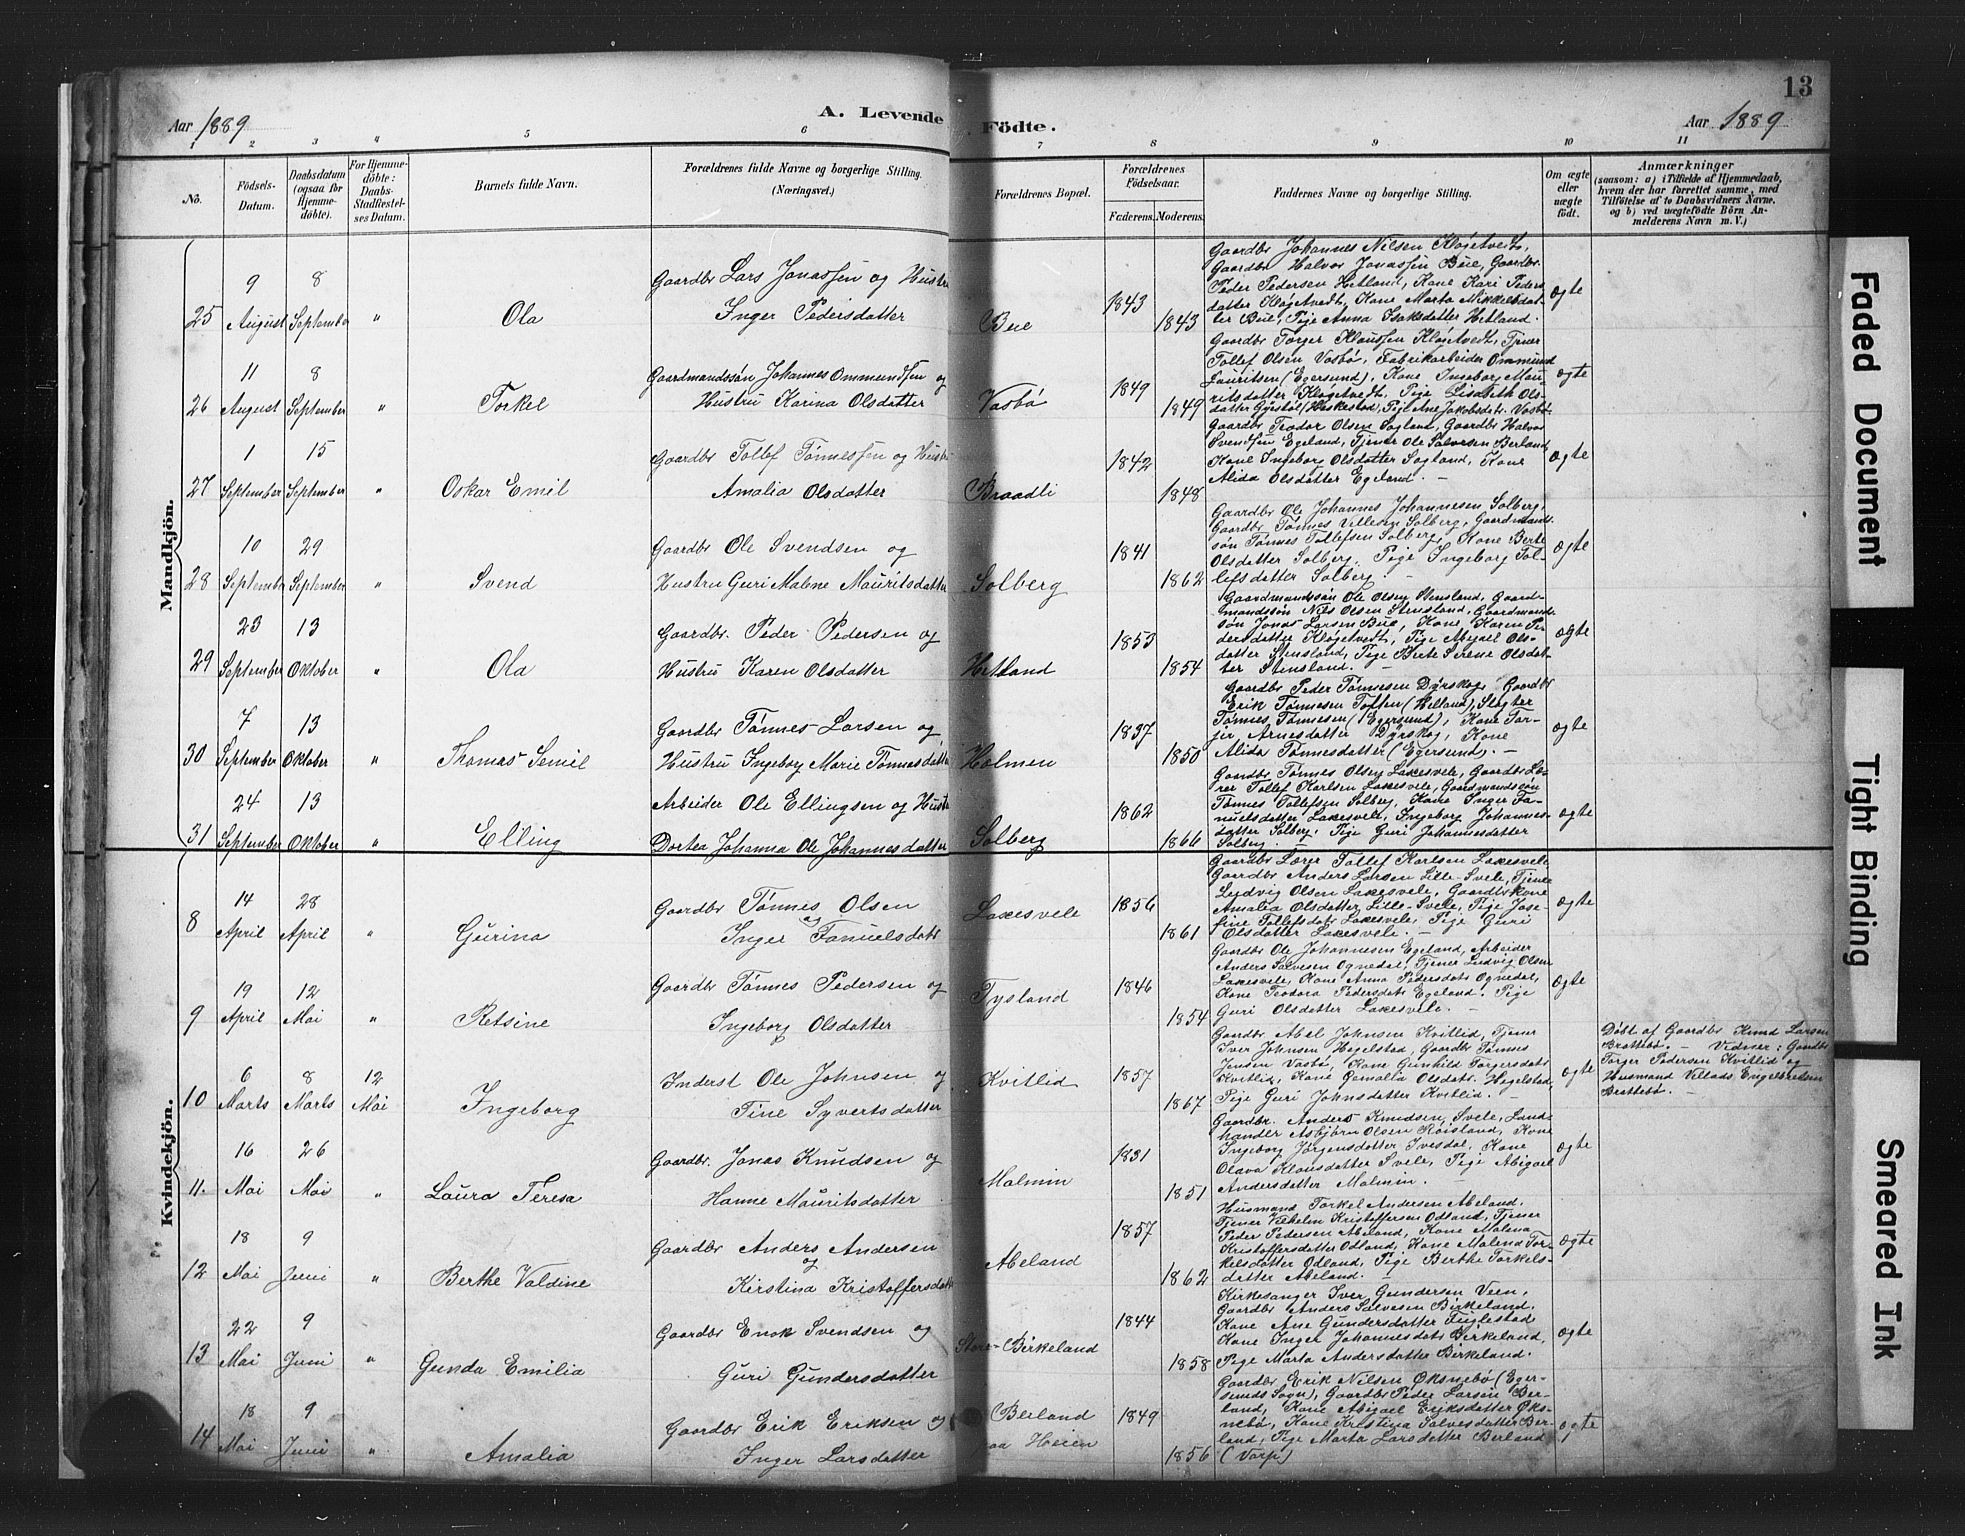 13
Aar 1889
A. Levende Födte.
Aar 1889
1 2 3 4 5 6 7 8 9 10 11
No.
Födsels-Datum.
Daabsdatum (ogsaa för Hjemme-döbte).
For Hjemme-döbte: Daabs-Stadfæstel-ses Datum.
Barnets fulde Navn.
Forældrenes fulde Navne og borgerlige Stilling. (Næringsvei.)
Forældrenes Bopæl.
Forældrenes Födselsaar.
Faderens. Moderens.
Faddernes Navne og borgerlige Stilling.
Om ægte eller uægte født.
Anmærkninger
(saasom: a) i Tilfælde af Hjemmedaab, hvem der har forrettet samme, med Tilföielse af to Daabsvidners Navne, og b) ved uægtefödte Börn An-melderens Navn m. V.)
Mandkjön.
25 9 August 8 September " Ola
Gaardbr Lars Jonassen og Hustru
Inger Pedersdatter
Bue 1843 1843
Gaardbr Johannes Nilsen Kløgetvedt,
Gaardbr Halvor Jonassen Bue, Gaardbr.
Peder Pedersen Hetland, Kone Kari Peders
datter Kløgetvedt, Kone Marta Mikkelsdat-
ter Bue, Pige Anna Isaksdatter Hetland.
Ægte
26 11 August 8 September " Torkel
Gaardmandssøn Johannes Ommundsen og
Hustru Karina Olsdatter
Vasbø 1849 1849
Gaardbr Torger Klausen Kløgetvedt, Tjener
Tollef Olsen Vasbø, Fabrikarbeider Ommund
Lauritsen (Egersund), Kone Ingeborg Mau-
ritsdatter Kløgetvedt, Pige Lisabeth Ols-
datter Gystøl (Heskestad), Pige Ane Jakobsdatr. Vasbø
Ægte
27 1 September 15 September " Oskar Emil
Gaardbr Tollef Tönnessen og Hustru
Amalia Olsdatter
Braadli 1842 1848
Gaardbr Teodor Olsen Sogland, Gaardbr Halvor
Svendsen Egeland, Tjener Ole Salvesen Berland
Kone Ingeborg Olsdatter Sogland, Kone
Alida Olsdatter Egeland. —
Ægte
28 10 September 29 September " Svend
Gaardbr Ole Svendsen og
Hustru Guri Malene Mauritsdatter
Solberg 1841 1862
Gaardbr Ole Johannes Johannesen Solberg,
Gaardbr Tønnes Villumsen Solberg, Gaardmands-
søn Tønnes Tollefsen Solberg, Kone Berte
Olsdatter Solberg, Pige Ingeborg Tol-
lefsdatter Solberg. —
Ægte
29 23 September 13 Oktober " Ola
Gaardbr. Peder Pedersen og
Hustru Karen Olsdatter
Hetland 1853 1854
Gaardmandssøn Ole Olsen Stensland, Gaard-
mandssøn Nils Olsen Stensland, Gaardmands-
søn Jonas Larsen Bue, Kone Karen Pe-
dersdatter Kløgetvedt, Pige Abigael Ols-
datter Stensland, Pige Berte Serene Olsdat-
ter Stensland. —
Ægte
30 7 September 13 Oktober " Thomas Semil
Gaardbr Tönnes Larsen og
Hustru Ingeborg Marie Tønnesdatter
Holmen 1837 1850
Gaardbr Peder Tønnesen Dyrskog, Gaardbr
Erik Tønnesen Totten (Helland), Slagter
Tønnes Tønnesen (Egersund), Kone Tor-
jer Arnesdatter Dyrskog, Kone
Alida Tønnesdatter (Egersund). —
Ægte
31 24 September 13 Oktober " Elling
Arbeider Ole Ellingsen og Hustru
Dortea Johanna Ole Johannesdatter
Solberg 1862 1866
Gaardbr Tønnes Olsen Laxesvele, Gaardbr Læ-
rer Tollef Karlsen Laxesvele, Gaardmandssøn
Tønnes Tollefsen Solberg, Kone Inger Fa-
nuelsdatter Laxesvele, Ingeborg Johannes-
datter Solberg, Pige Guri Johannesdatter
Solberg. —
Ægte
Kvindekjön.
8 14 April 28 April " Gurina
Gaardbr Tönnes Olsen
og
Inger Fanuelsdatr
Laxesvele 1856 1861
Gaardbr Lærer Tollef Karlsen Laxesvele
Gaardbr Anders Larsen Lille-Svele, Tjener
Ludvig Olsen Laxesvele, Gaardbrkone
Amalia Olsdatter Lille-Svele, Pige Jose-
fine Tollefsdatr Laxesvele, Pige Guri
Olsdatter Laxesvele. —
Ægte
9 19 April 12 Mai " Retsine
Gaardbr Tönnes Pedersen og
Ingeborg Olsdatter
Tysland 1846 1854
Gaardbr Ole Johannesen Egeland, Arbeider
Anders Salvesen Ognedal, Tjener Ludvig Olsen
Laxesvele, Kone Anna Pedersdatr Ognedal,
Kone Teodora Pedersdatr Egeland. Pige
Guri Olsdatter Laxesvele. —
Ægte
10 6 Marts 8 Marts 12 Mai Ingeborg
Inderst Ole Johnsen og
Tine Syvertsdatter
Kvitlid 1857 1867
Gaardbr Abel Johnsen Kvitlid, Tjener
Iver Johnsen Hegelstad, Gaardbr Tønnes
Jensen Vasbø, Kone Gunhild Torgersdatr
Kvitlid, Kone Gemalia Olsdatr. Hegelstad,
Pige Guri Johnsdatter Kvitlid. —
Ægte
Döbt af Gaardbr Knud Larsen
Brattebø. — Vidner: Gaardbr
Torger Pedersen Kvitlid og
Husmand Villads Engelbretsen
Brattebø. —
11. 16 Mai 26 Mai " Laura Teresa
Gaardbr. Jonas Knudsen og
Hanne Mauritsdatter
Malmin 1831 1851
Gaardbr. Anders Knudsen, Svele, Land-
handler Asbjørn Olsen Røisland, Kone
Ingeborg Jørgensdatter Ivesdal, Kone
Olava Klausdatter Svele, Pige Abigael
Andersdatter Malmin. —
Ægte
12 18 Mai 9 Juni " Berthe Valdine
Gaardbr Anders Andersen
og
Kirstina Kristoffersdatter
Abeland 1857 1862
Husmand Torkel Andersen Abeland.
Tjener Vilhelm Kristoffersen Odland, Tjener
Peder Pedersen Abeland, Kone Malena
Kristoffersdatter Odland, Kone Malena Tor-
kelsdatter Odland, Pige Berthe Torkels-
datter Abeland. —
Ægte
13 22 Mai 9 Juni " Gunda Emilia
Gaardbr Enok Svendsen og
Guri Gundersdatter
Store-Birkeland 1844 1858
Kirkesanger Iver Gundersen Veen,
Gaardbr Anders Salvesen Birkeland,
Kone Ane Gundersdatter Fuglestad
Kone Inger Johannesdatr Birkeland,
Pige Marta Andersdatter Birkeland.
Ægte
14 18 Mai 9 Juni " Amalia
Gaardbr Erik Eriksen og
Inger Larsdatter
Berland
paa Heien 1849 1856
Gaardbr. Erik Nilsen Øksnebø (Eger-
sunds Sogn), Gaardbr Peder Larsen Ber-
land, Kone Abigael Eriksdatter Øks-
nebø, Kone Kristina Salvesdatter Ber-
land, Pige Marta Larsdatter Berland
(Varp)
ægte
Faded Document
Tight Binding
Smeared Ink